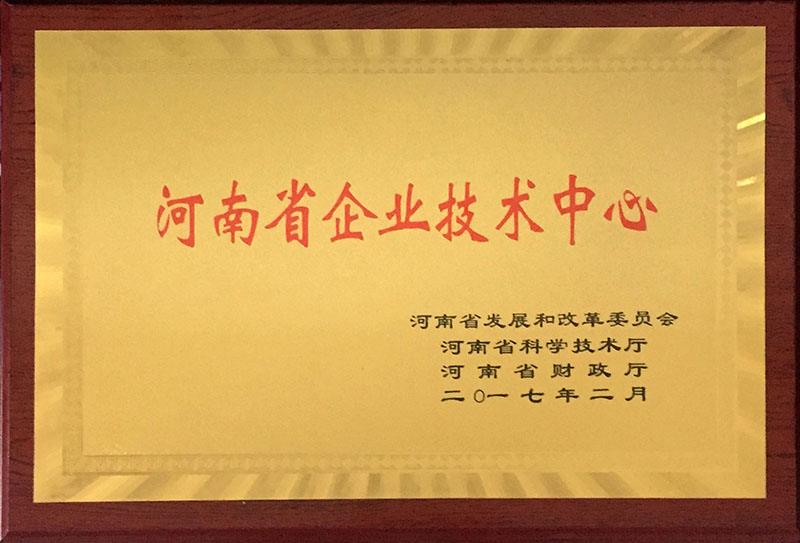 河南省企业技术中心
河南省发展和改革委员会
河南省科学技术厅
河南省财政厅
二〇一七年二月